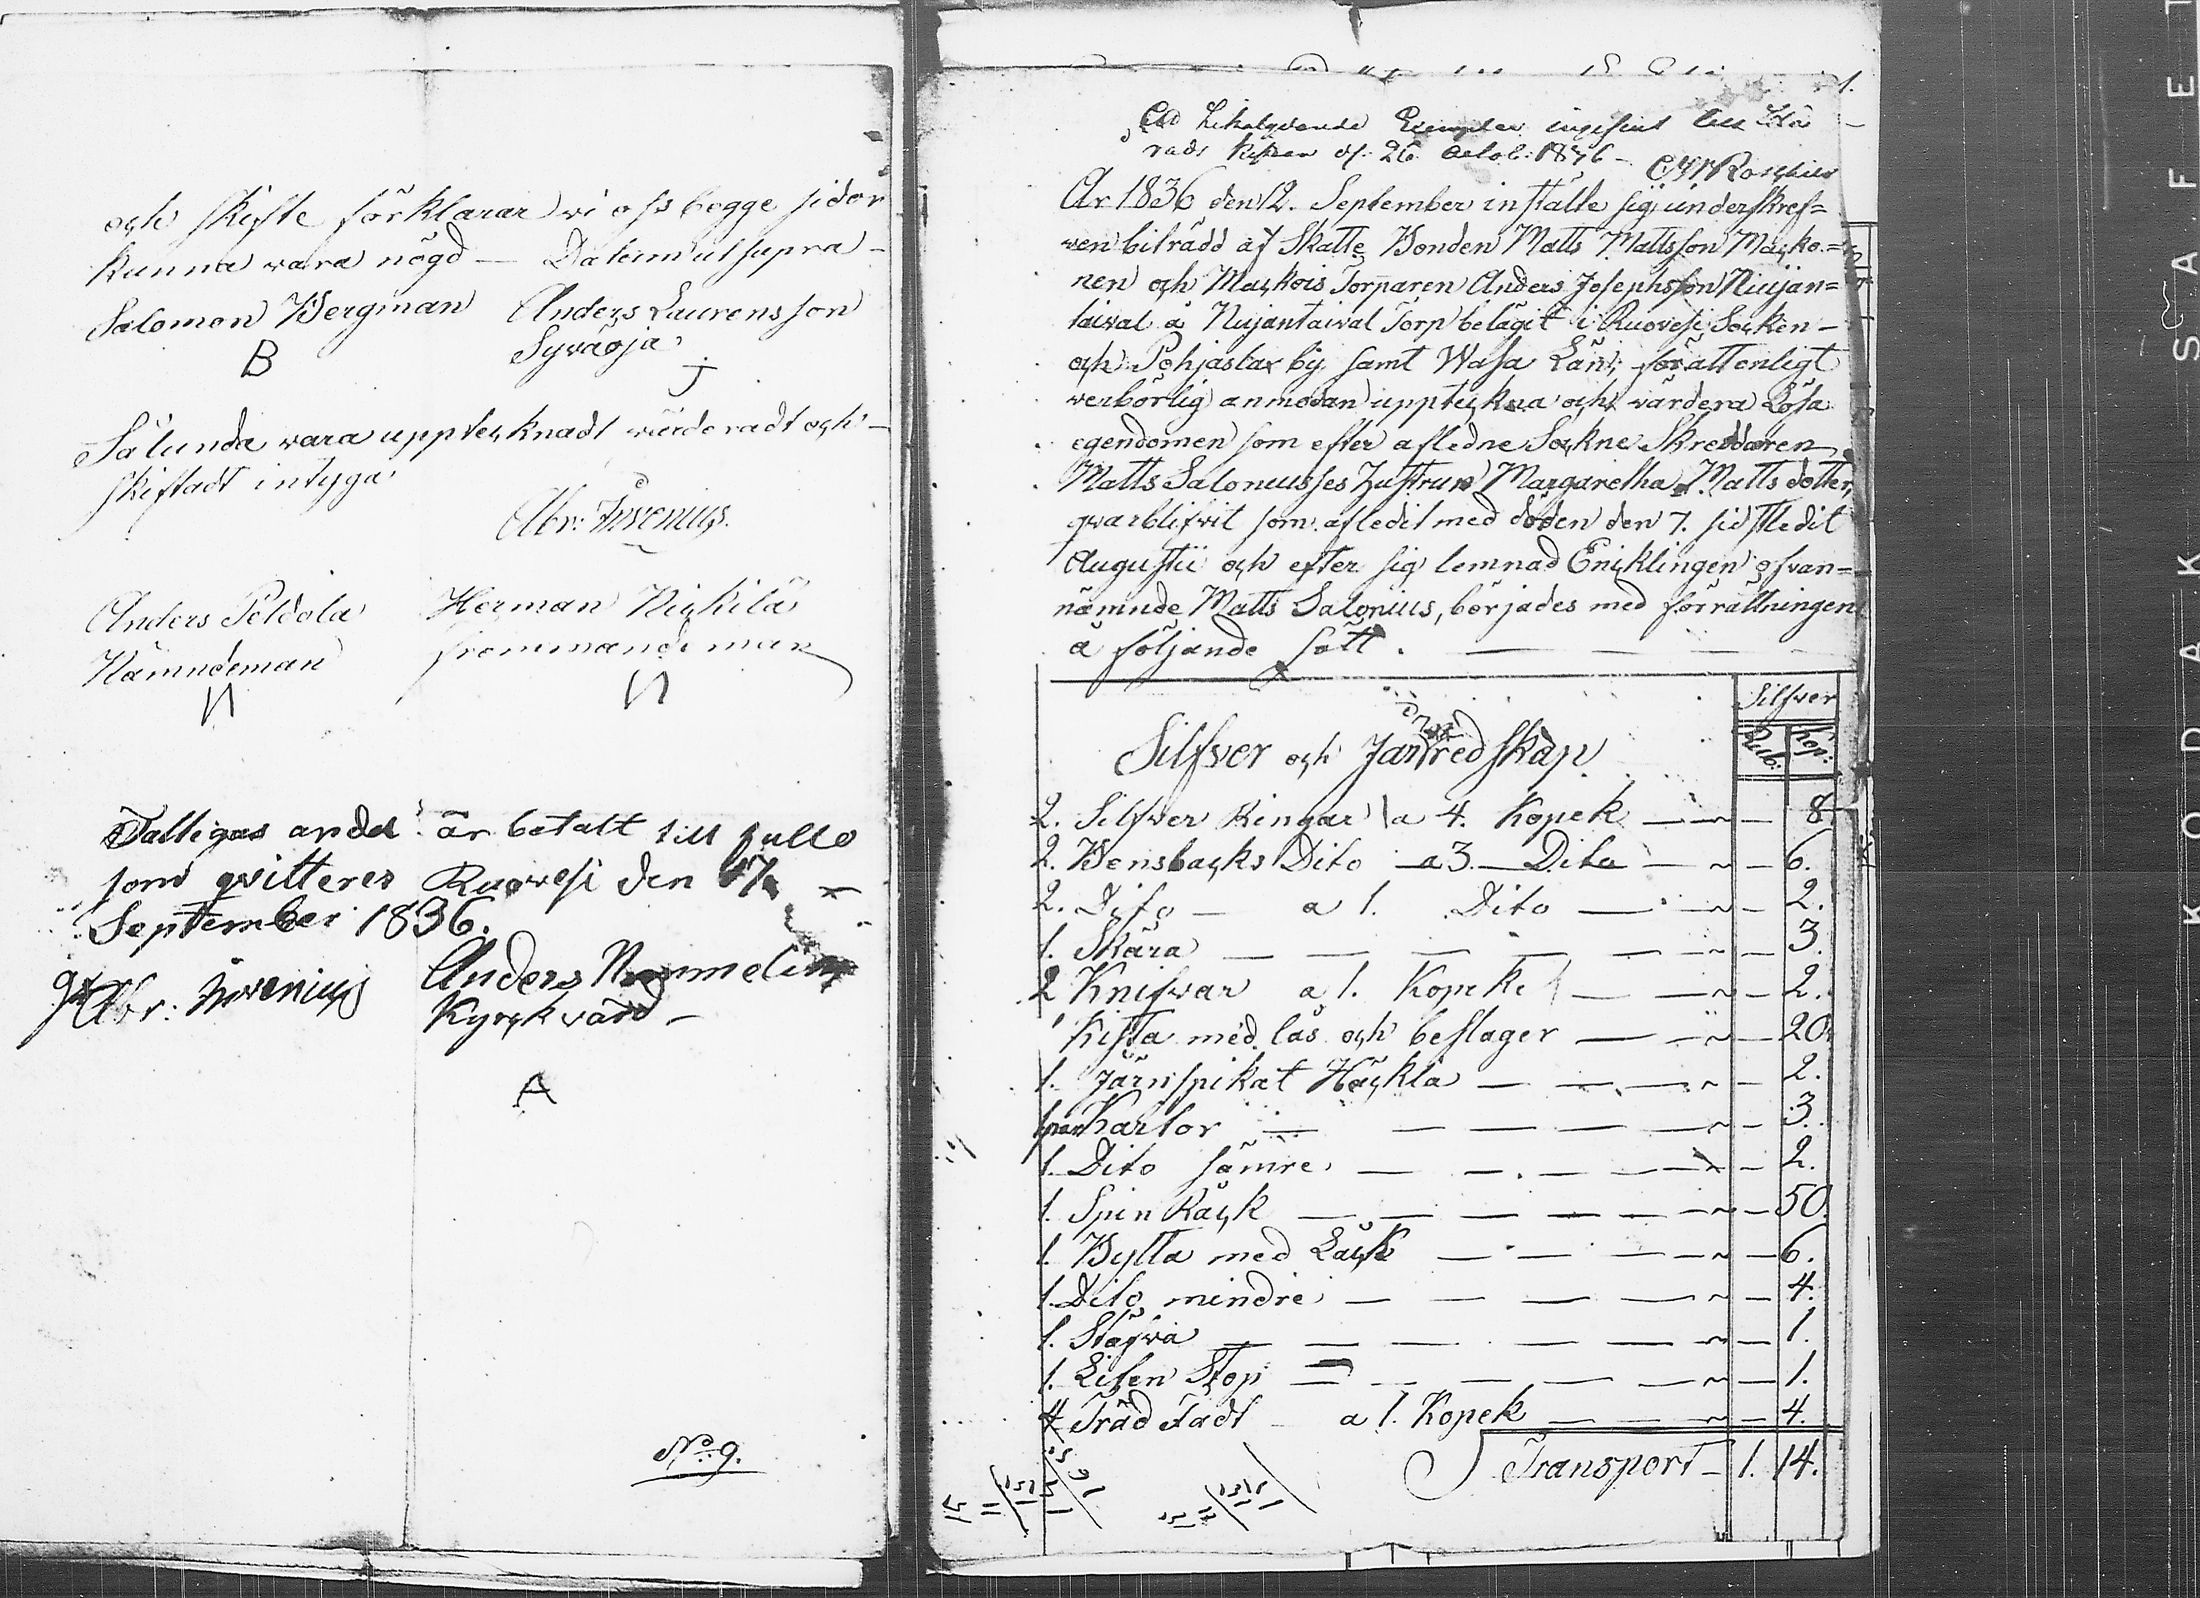 och skifte förklarar wi oss begge sidor
kunna wara nögd — Datum ut supra —
Salomon Bergman Anders Laurensson
B Sywäoja
J
Sålunda vara upptecknadt värderadt och
skiftadt intyga
Abr:
Anders Peldola Herman Nickilä
Nämndeman
N N
Fattigas andel är betalt till fullo
som qvitteres Ruovesi den 17
September 1836.
Abr: Anders
Kyrckvärd —
A
No: 9.
1.
Ett Likalydande Exemplar ingifvit till Hä
rads Rätten d. 26 Octob: 1836 —
År 1836 den 12. September instälte sig underskref=
wen biträdd af Skatte Bonden Matts Mattsson Macko=
nen och Mackois Torparen Anders Josephsson Niujan=
taival å Nujantaival Torp belägit i Ruovesi Socken —
och Pohjaslax by samt Wasa Län; för att enligt
werbörlig anmodan uppteckna och wärdera Lösa
egendomen som efter afledne Sockne Skreddaren
Matts Saloniusses Hustrun Margaretha Matts dotter,
qwarblifvit som afledit med döden den 7. sidstledit
Augustii och efter sig lemnad Encklingen ofvan=
nämnde Matts Salonius, börjades med förrättningen
å följande sätt. —
Silfver
Rub: Kop:
Silfver och Jarnredskap
2. Silfver Ringar a 4. Kopek — 8.
2. Bensbacks Dito a 3. Dito — 6.
2. Dito — a 1. Dito — 2.
1. Skära — 3.
2 Knifwar a 1. Kopek — 2.
1 Kista med lås och beslager — 20.
1. Järnspikat Häckla — 2.
1 par Kartor — 3.
1. Dito sämre — 2.
1. Spin Räck — 50.
1. Bytta med Läck — 6.
1. Dito mindre — 4.
1. Stäfwa — 1.
1. Liten Stop — 1.
4 Träd Fadt — a 1. Kopek — 4.
Transport — 1. 14.
KODAK SAFET